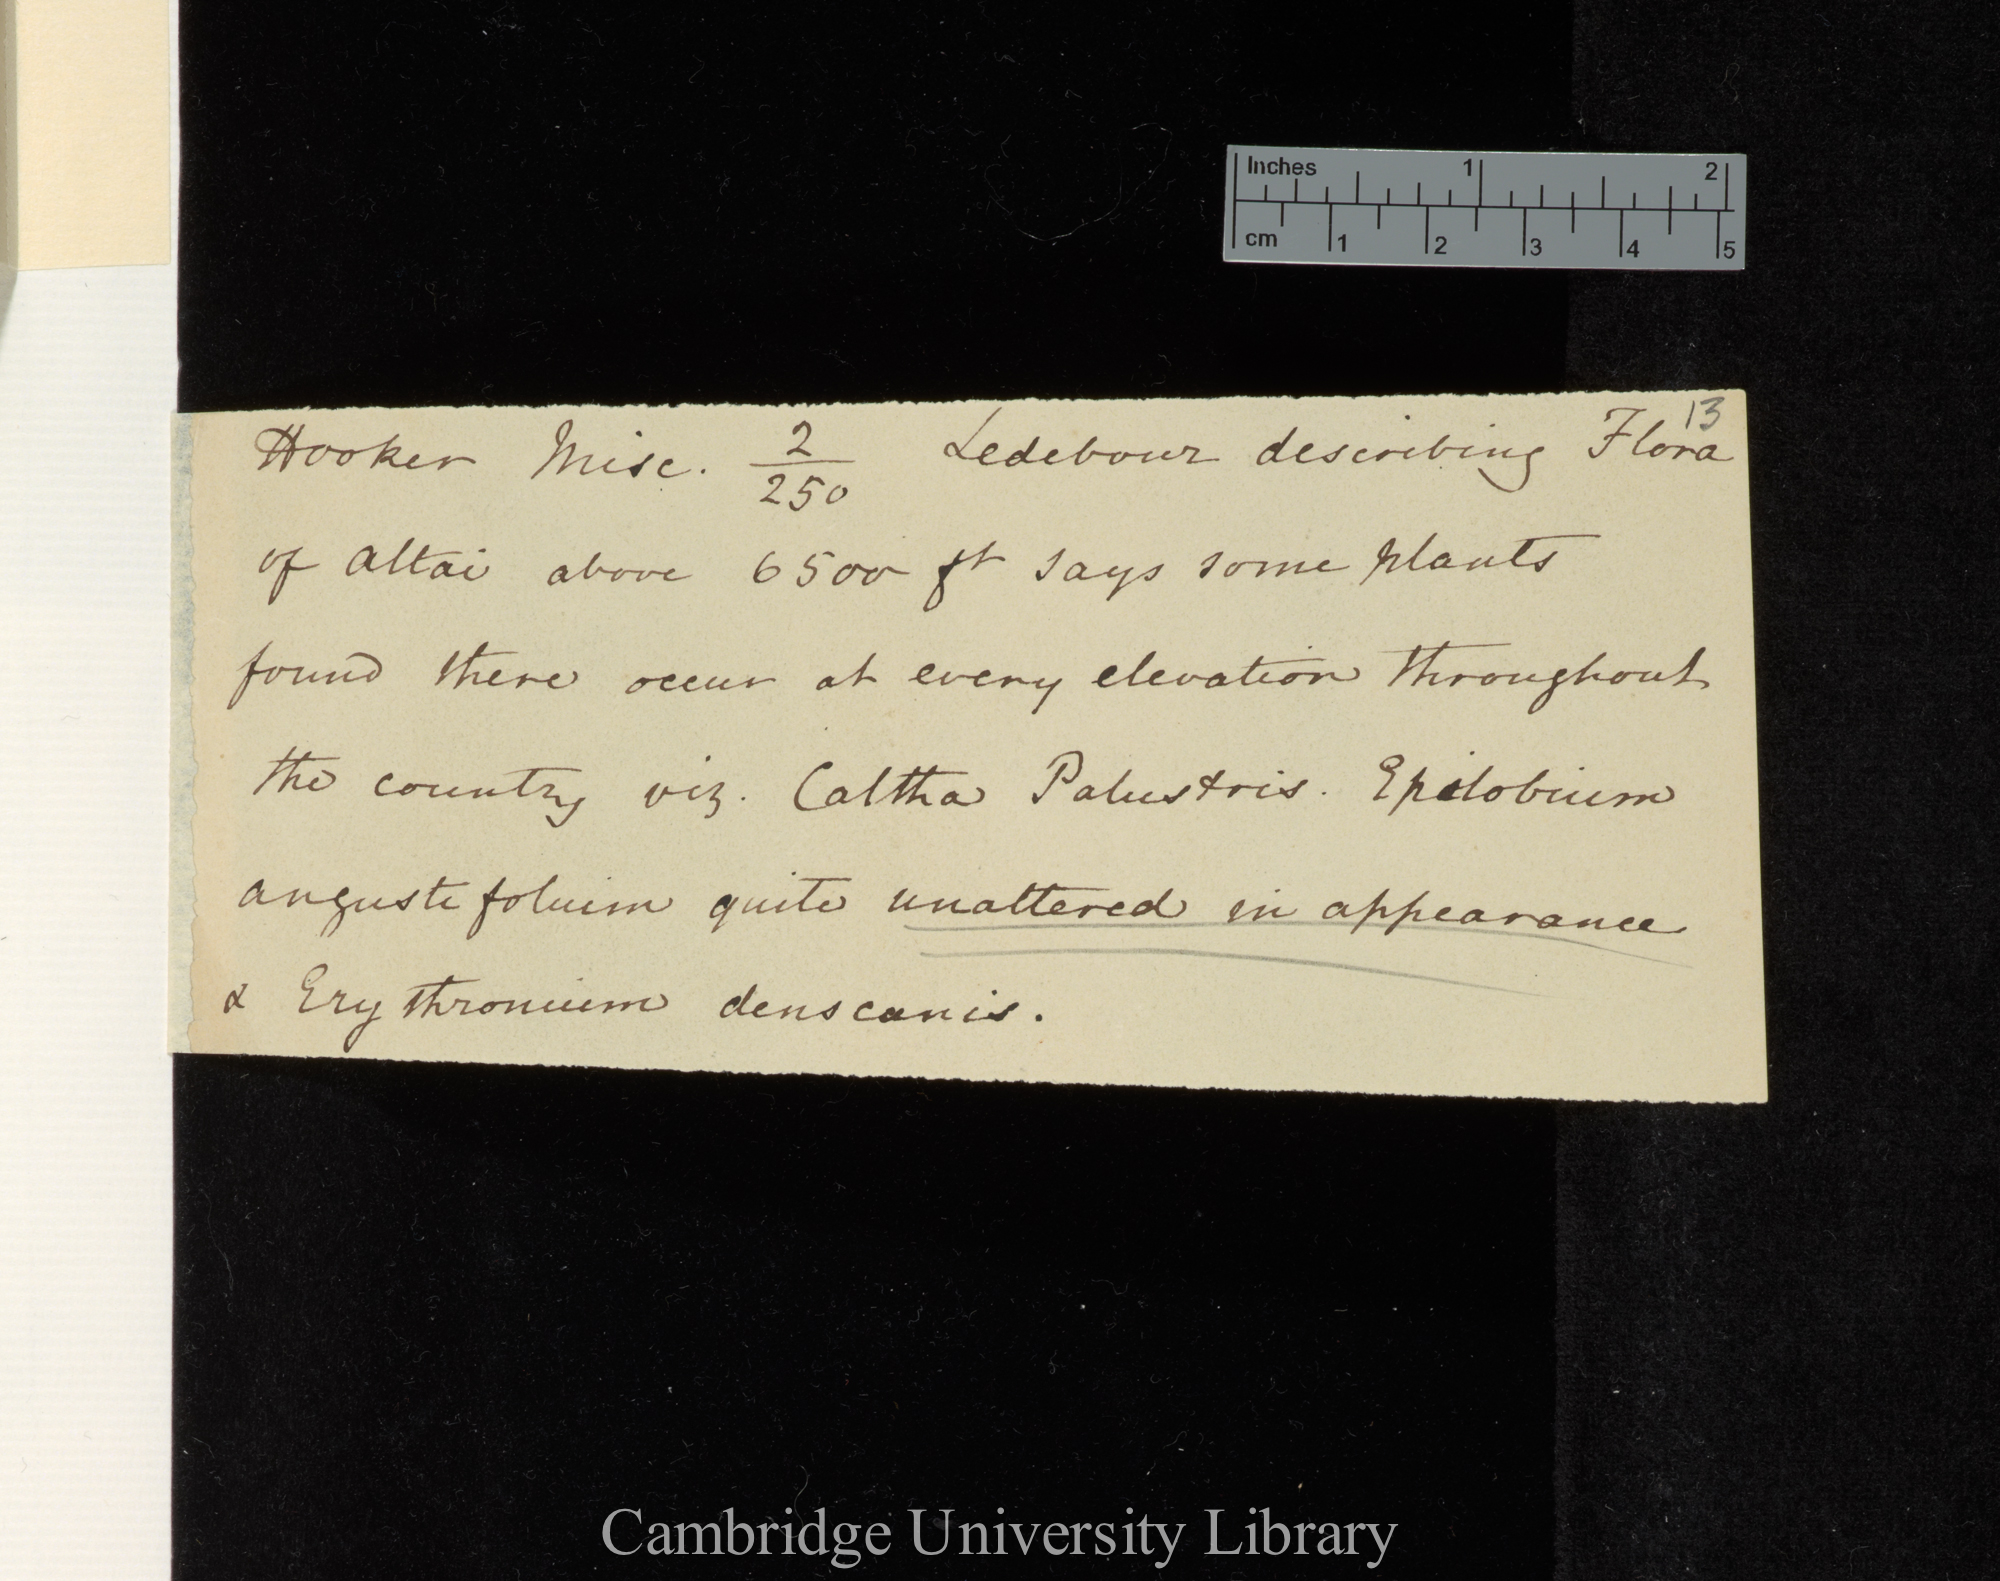 Inches 1 2
cm 1 2 3 4 5
13
Hooker Misc. 2/250 Ledebour describing Flora
of Altai above 6500 ft says some plants
found there occur at every elevation throughout
the country viz. Caltha Palustris. Epilobium
anguste folium quite unaltered in appearance
& Erythronium denscanis.
Cambridge University Library